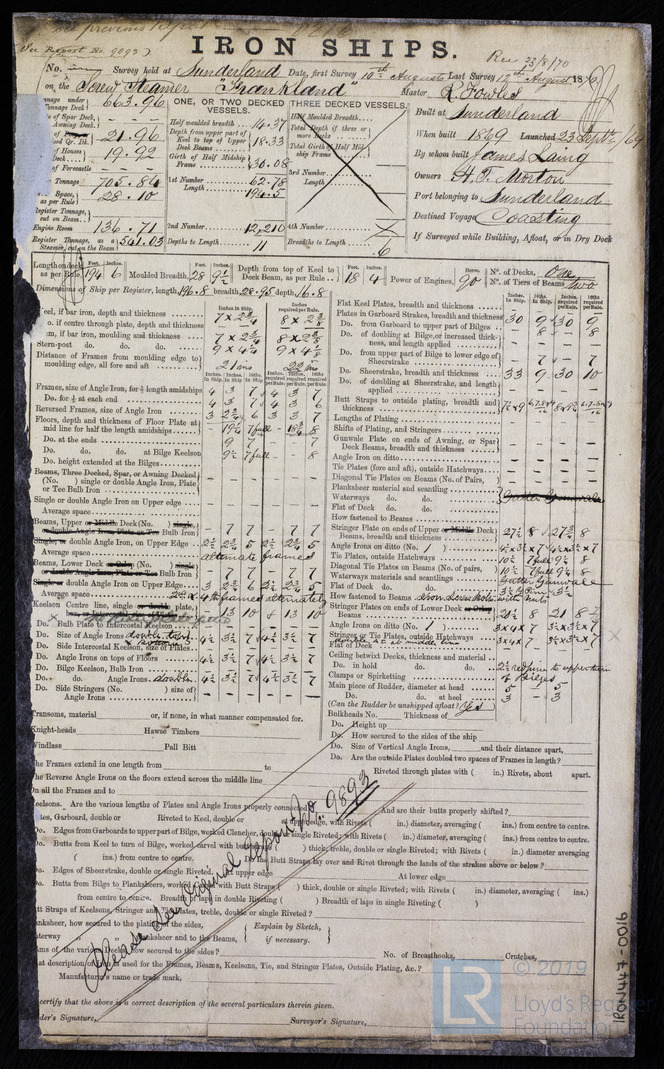 previous Report
See Report No. 9893)
IRON SHIPS.
Rec 23/8/70
No. Survey held at Sunderland Date, first Survey 10th August Last Survey 12th August 1870
on the Screw Steamer "Frankland" Master R. Fowles
Tonnage under Tonnage Deck 663.96
of Spar Deck,
Awning Deck,
Qr. Dk. 21.96
of House Deck 19.92
of Forecastle
Tonnage 705.84
Space, 28.10
Register Tonnage, cut on Beam
Engine Room 136.71
Register Tonnage, as a Steamer, cut on the Beam 541.03
ONE, OR TWO DECKED VESSELS.
Half moulded breadth 14.37
Depth from upper part of Keel to top of Upper Deck Beams 18.33
Girth of Half Midship Frame 30.08
1st Number 62.78
Length 194.5
2nd Number 12,210
Depths to Length 11
THREE DECKED VESSELS.
Half Moulded Breadth
Total Depth if three or more Decks
Total Girth of Half Midship Frame
3rd Number
Length
4th Number
Breadths to Length 6
Built at Sunderland
When built 1869 Launched 23 Sept 69
By whom built James Laing
Owners H. T. Morton
Port belonging to Sunderland
Destined Voyage Coasting
If Surveyed while Building, Afloat, or in Dry Dock
Length on deck as per Rule 194 6 Moulded Breadth 28 9½ Depth from top of Keel to Deck Beam, as per Rule 18 4 Power of Engines, Horse. 90 Nº. of Decks, One
Nº. of Tiers of Beams two
Dimensions of Ship per Register, length, 196.8 breadth, 28.95 depth, 16.8
Inches in Ship. Inches required per Rule.
Keel, if bar iron, depth and thickness 7 x 2¾ 8 x 2⅜
Do. if centre through plate, depth and thickness
Stem, if bar iron, moulding and thickness 7 x 2¾ 8 x 2⅜
Stern-post do. do. do. 9 x 4¼ 9 x 4⅝
Distance of Frames from moulding edge to moulding edge, all fore and aft 21 ins 22 ins
Frames, size of Angle Iron, for ⅗ length amidships 4 3 7 4 3 7
Do. for ⅕ at each end 4 3 6 4 3 6
Reversed Frames, size of Angle Iron 3 2¾ 6 3 3 7
Floors, depth and thickness of Floor Plate at mid line for half the length amidships 19½ 7full 18¾ 8
Do. at the ends 9 7 7
Do. do. do. at Bilge Keelson 9½ 7full 8
Do. height extended at the Bilges
Beams, Three Decked, Spar, or Awning Decked (No. ) single or double Angle Iron, Plate or Tee Bulb Iron
Single or double Angle Iron on Upper edge
Average space
Beams, Upper or Middle Deck (No. ) single, or double Angle Iron, Plate or Tee Bulb Iron 7 7 7 7
Single, or double Angle Iron on Upper Edge 2½ 2¾ 5 2½ 2¾ 5
Average space alternate frames
Beams, Lower Deck or Orlop (No. ) Single or double Angle Iron, Plate or Tee Bulb Iron 7 7 7 7
Single or double Angle Iron on Upper Edge 3 2¾ 6 2½ 2¾ 5
Average space 2nd & 4th frames alternately
Keelson Centre line, single or double plate, box, or Intercostal 13 10 13 10
Do. Bulb Plate to Intercostal Keelson
Do. Size of Angle Irons double 4½ 3½ 7 4½ 3½ 7
Do. Side Intercostal Keelson, size of Plates
Do. Angle Irons on tops of Floors 4½ 3½ 7 4½ 3½ 7
Do. Bilge Keelson, Bulb Iron
Do. do. Angle Irons double 4½ 3½ 7 4½ 3½ 7
Do. Side Stringers (No. ) size of Angle Irons
Flat Keel Plates, breadth and thickness
Plates in Garboard Strakes, breadth and thickness 30 9 30 9
Do. from Garboard to upper part of Bilges 8 8
Do. of doubling at Bilge, or increased thickness, and length applied
Do. from upper part of Bilge to lower edge of Sheerstrake 7 7
Do. Sheerstrake, breadth and thickness 33 9 30 10
Do. of doubling at Sheerstrake, and length applied
Butt Straps to outside plating, breadth and thickness
Lengths of Plating
Shifts of Plating, and Stringers
Gunwale Plate on ends of Awning, or Spar Deck Beams, breadth and thickness
Angle Iron on ditto
Tie Plates (fore and aft), outside Hatchways
Diagonal Tie Plates on Beams (No. of Pairs, )
Planksheer material and scantling
Waterways do. do.
Flat of Deck do. do.
How fastened to Beams
Stringer Plate on ends of Upper or Middle Deck Beams, breadth and thickness 27½ 8 27¾ 8
Angle Irons on ditto (No. 1) 4½ x 3½ x 7 4½ x 3½ x 7
Tie Plates, outside Hatchways 10½ 7full 9½ 8
Diagonal Tie Plates on Beams (No. of pairs, 10½ 7full 9½ 8
Waterways materials and scantlings Gutter Gunwale
Flat of Deck do. do. 3½ Pine 3½
How fastened to Beams
Stringer Plates on ends of Lower Deck or Orlop Beams 20½ 8 21 8
Angle Irons on ditto (No. 1) 3 x 4 x 7
Stringers or Tie Plates, outside Hatchways
Flat of Deck
Ceiling betwixt Decks, thickness and material
Do. in hold do. do. 2½ red pine to upper turn
Clamps or Spirketting of Bilges
Main piece of Rudder, diameter at head 5 5
Do. do. at heel 3 3
(Can the Rudder be unshipped afloat?) Yes
Bulkheads No. Thickness of
Do. Height up
Do. How secured to the sides of the ship
Do. Size of Vertical Angle Irons, and their distance apart,
Do. Are the outside Plates doubled two spaces of Frames in length?
Transoms, material or, if none, in what manner compensated for.
Knight-heads Hawse Timbers
Windlass Pall Bitt
The Frames extend in one length from to Riveted through plates with ( in.) Rivets, about apart.
The Reverse Angle Irons on the floors extend across the middle line
On all the Frames and to
Keelsons. Are the various lengths of Plates and Angle Irons properly connected And are their butts properly shifted?
Plates, Garboard, double or Riveted to Keel, double or upper edge, with Rivets ( in.) diameter, averaging ( ins.) from centre to centre.
Do. Edges from Garboards to upper part of Bilge, worked Clencher, double or single Riveted; with Rivets ( in.) diameter, averaging ( ins.) from centre to centre.
Do. Butts from Keel to turn of Bilge, worked carvel with butt ) thick, treble, double or single Riveted; with Rivets ( in.) diameter averaging
( ins.) from centre to centre. Butt Straps lay over and Rivet through the lands of the strakes above or below?
Do. Edges of Sheerstrake, double or single Riveted. upper edge At lower edge
Do. Butts from Bilge to Planksheers, worked with Butt Straps ( ) thick, double or single Riveted; with Rivets ( in.) diameter, averaging
from centre to centre. Breadth of laps in double Riveting ( ) Breadth of laps in single Riveting ( )
Butt Straps of Keelsons, Stringer and Plates, treble, double or single Riveted?
Planksheer, how secured to the plating of the sides, Explain by Sketch,
Waterway planksheer and to the Beams, if necessary.
how secured to the sides? No. of Breasthooks, Crutches,
What description of used for the Frames, Beams, Keelsons, Tie, and Stringer Plates, Outside Plating, &c.?
Manufacturer's name or trade mark,
certify that the above is a correct description of the several particulars therein given.
Builder's Signature, Surveyor's Signature,
Please see Original Report No. 9893
IRON447-0016
LR
© 2019
Lloyd's Register
Foundation